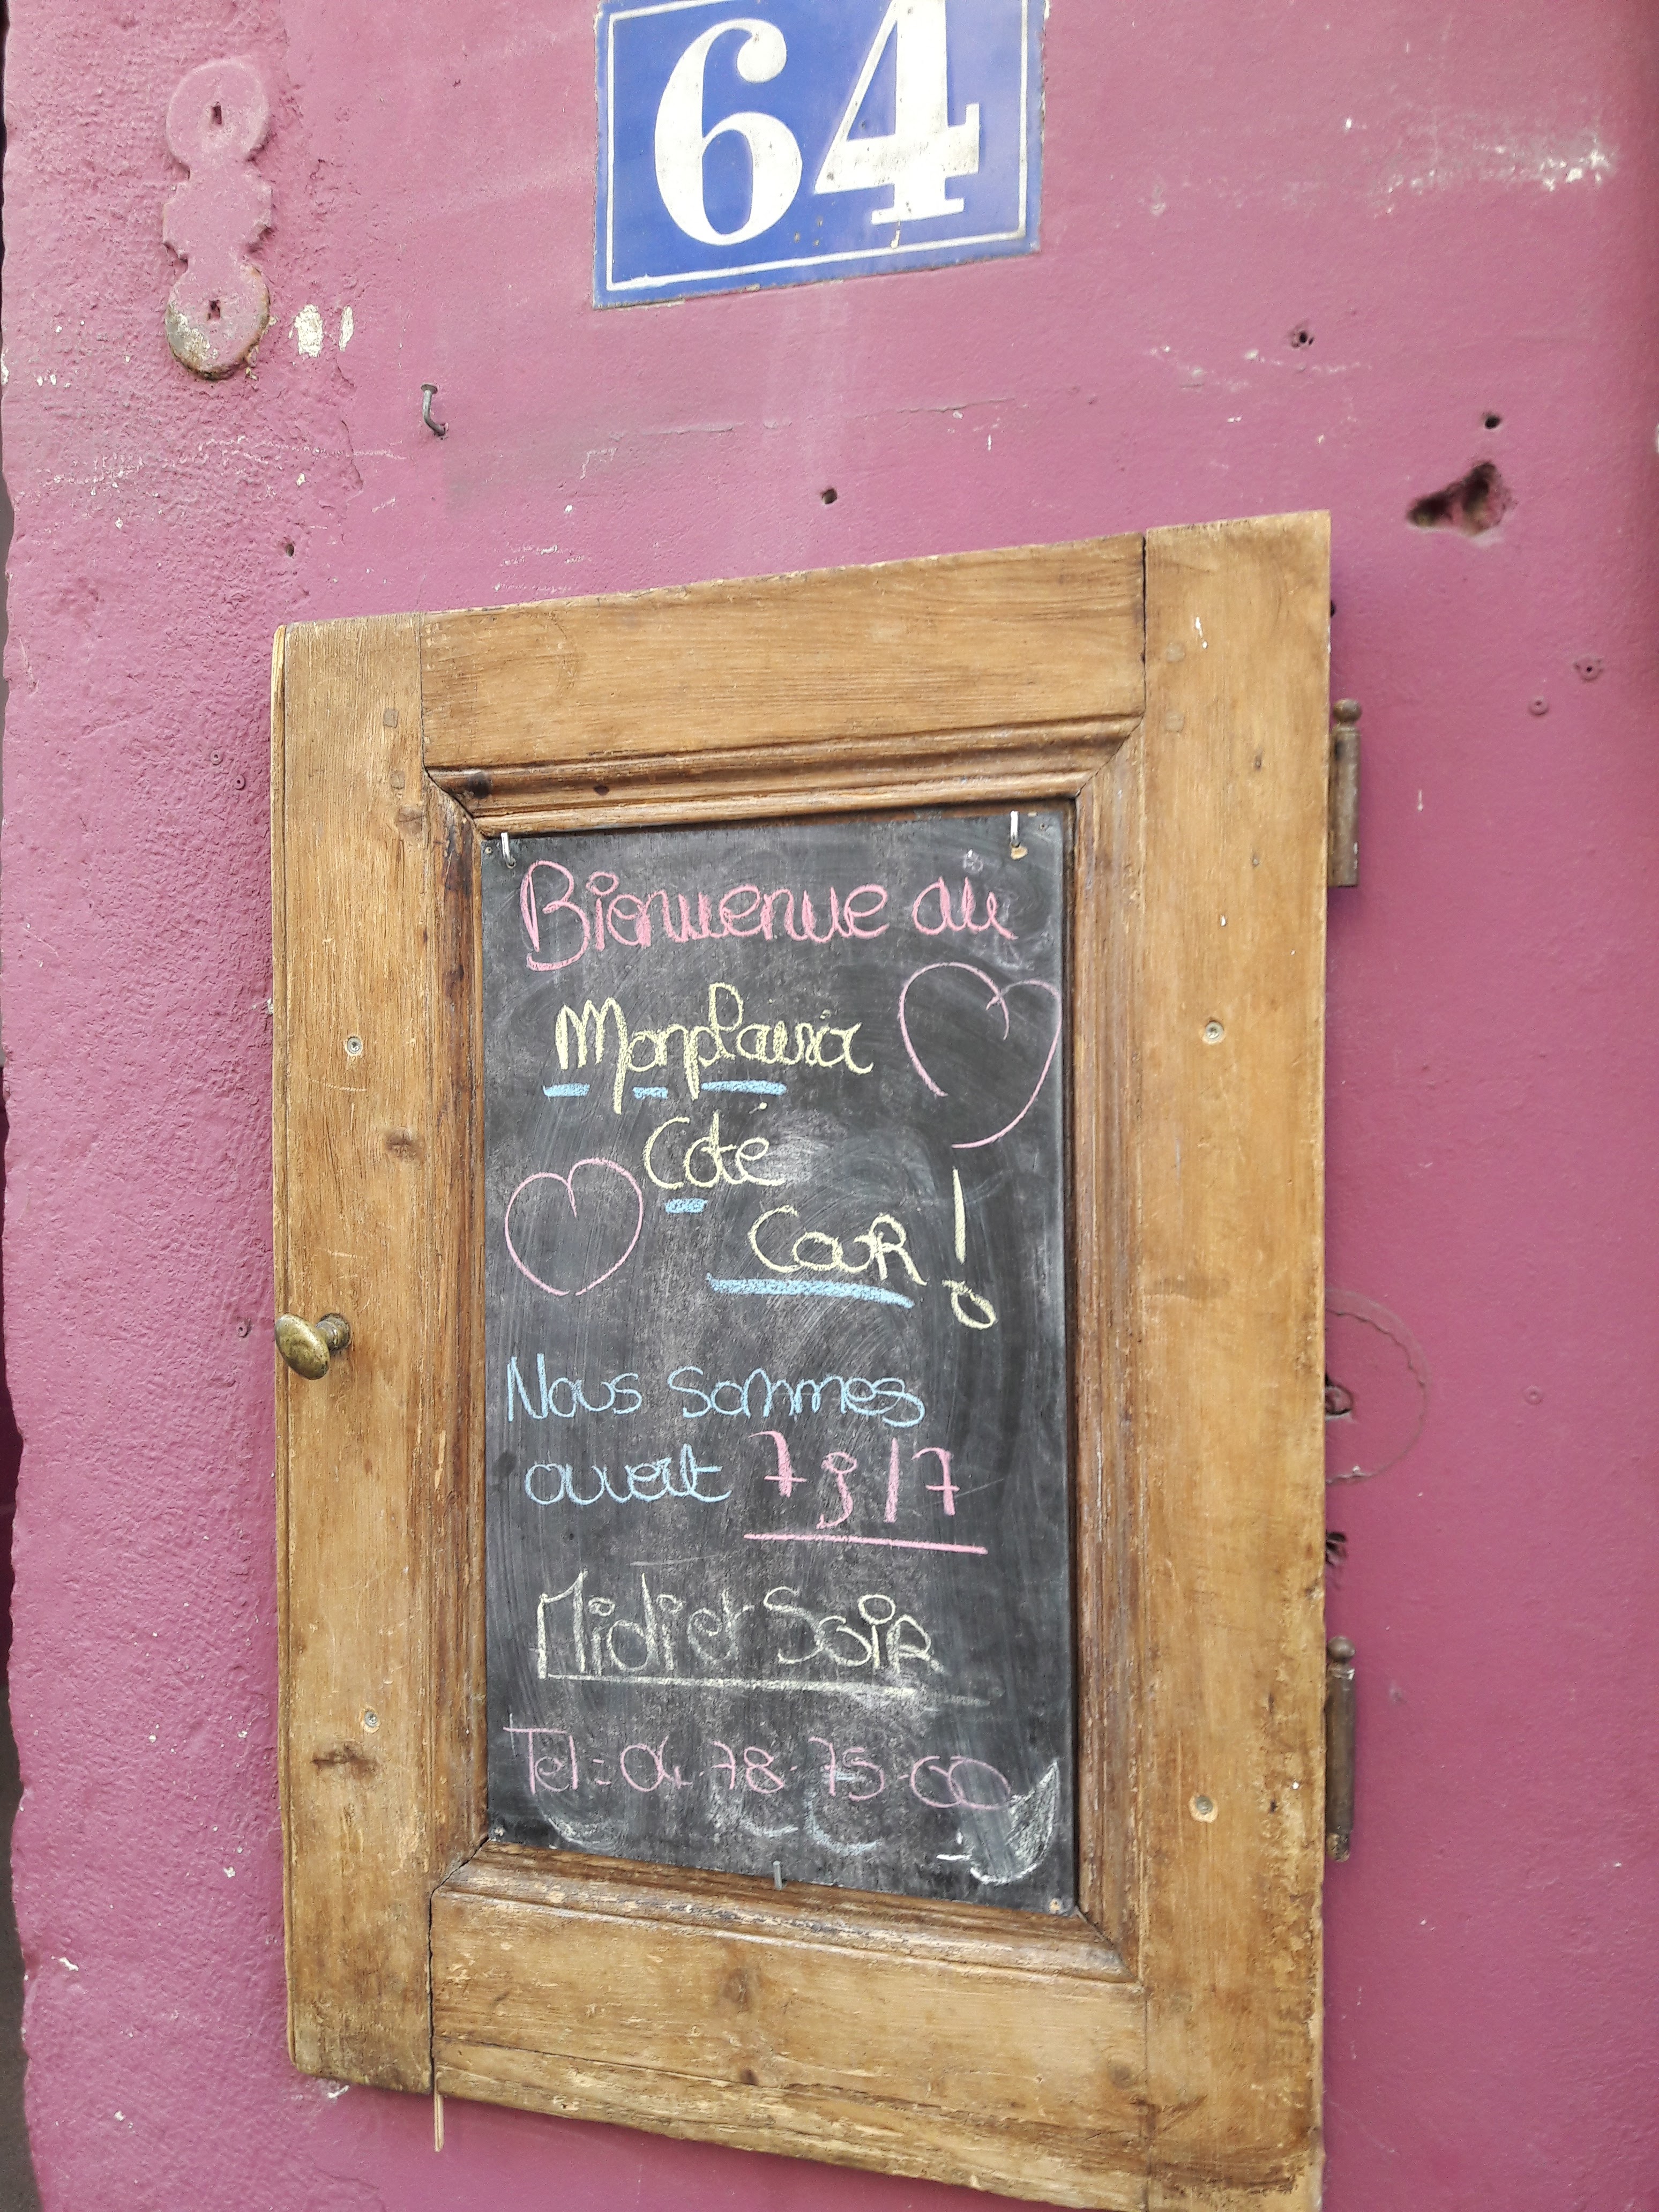 64
Bienvenue au
Monplaisir
Coté
CouR !
Nous sommes
ouvert 7j/7
Midi et SoiR
Tel : 04 78 75 60